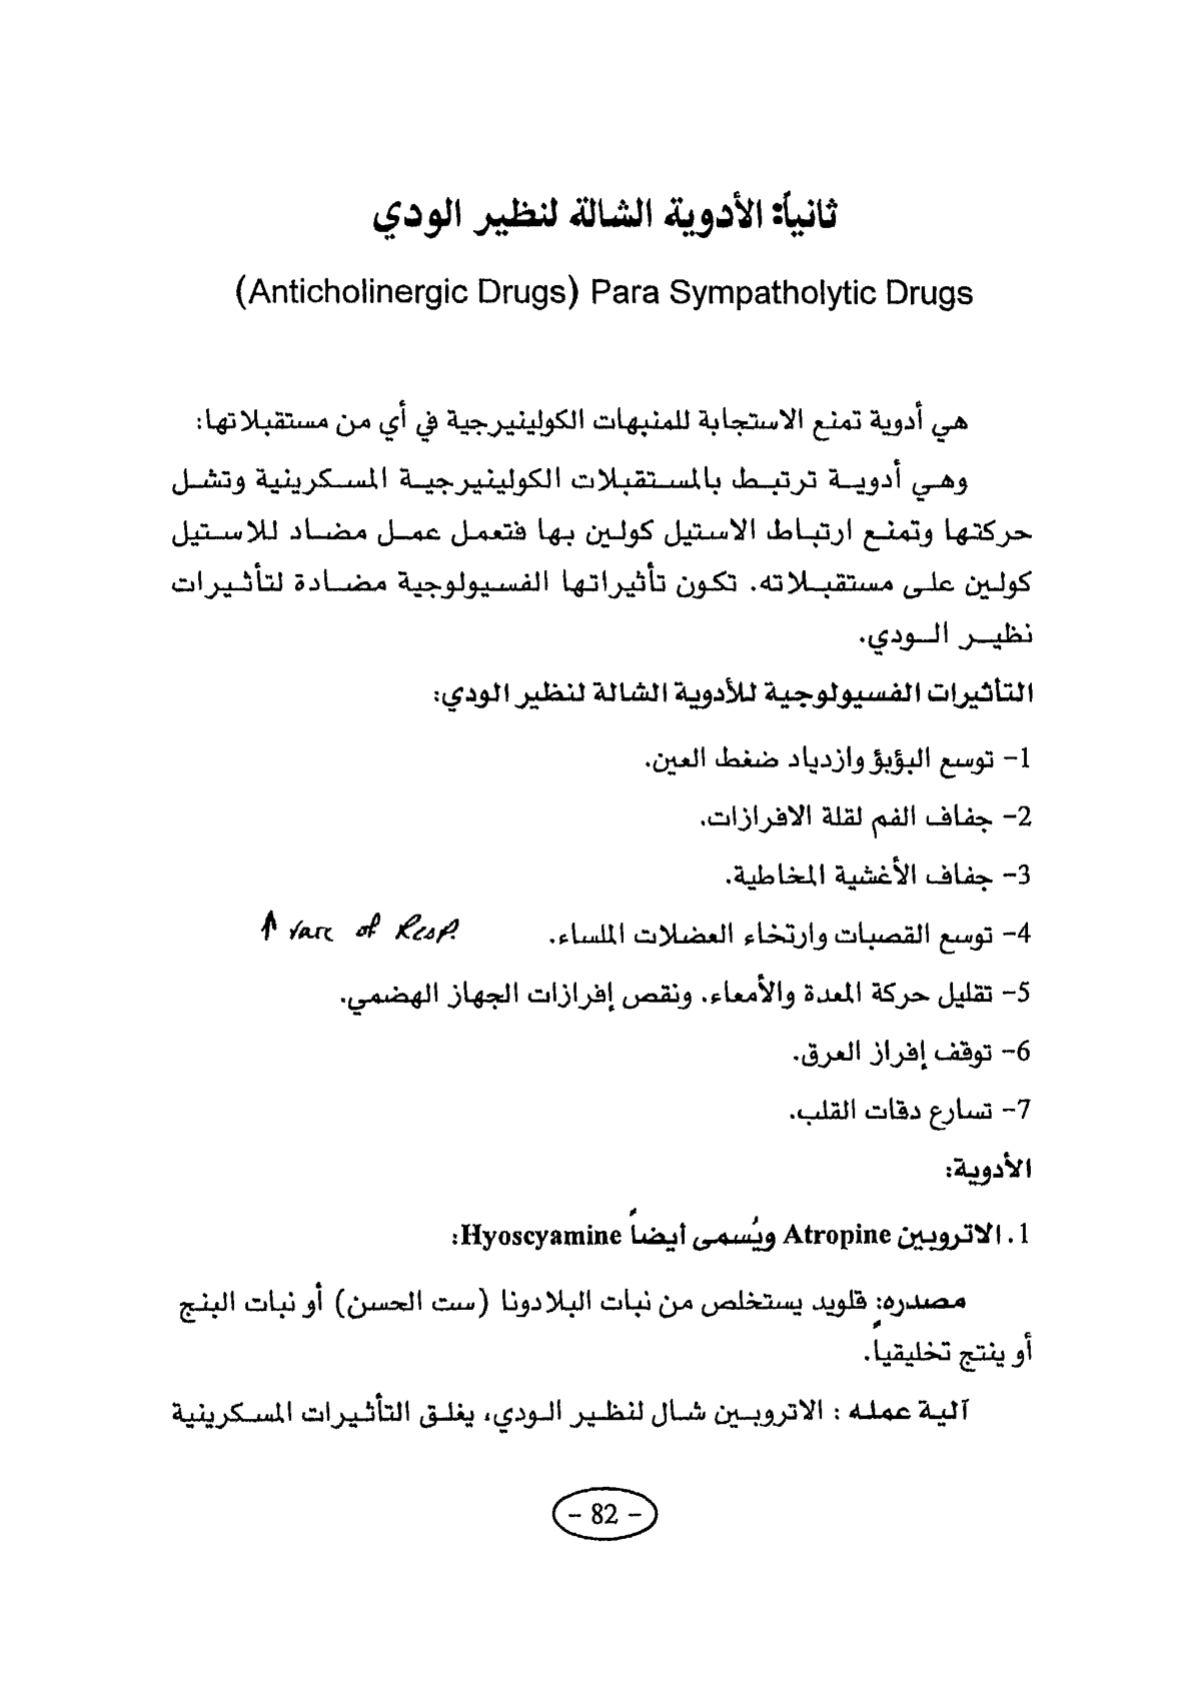 ثانياً: الأدوية الشالة لنظير الودي
(Anticholinergic Drugs) Para Sympatholytic Drugs
هي أدوية تمنع الاستجابة للمنبهات الكولينيرجية في أي من مستقبلاتها:
وهي أدوية ترتبط بالمستقبلات الكولينيرجية المسكرينية وتشل
حركتها وتمنع ارتباط الاستيل كولين بها فتعمل عمل مضاد للاستيل
كولين على مستقبلاته. تكون تأثيراتها الفسيولوجية مضادة لتأثيرات
نظير الودي.
التأثيرات الفسيولوجية للأدوية الشالة لنظير الودي:
1- توسع البؤبؤ وازدياد ضغط العين.
2- جفاف الفم لقلة الافرازات.
3- جفاف الأغشية المخاطية.
4- توسع القصبات وارتخاء العضلات الملساء. ↑ of Resp.
5- تقليل حركة المعدة والأمعاء. ونقص إفرازات الجهاز الهضمي.
6- توقف إفراز العرق.
7- تسارع دقات القلب.
الأدوية:
1. الاتروبين Atropine ويُسمى أيضاً Hyoscyamine:
مصدره: قلويد يستخلص من نبات البلادونا (ست الحسن) أو نبات البنج
أو ينتج تخليقياً.
آلية عمله : الاتروبين شال لنظير الودي، يغلق التأثيرات المسكرينية
- 82 -